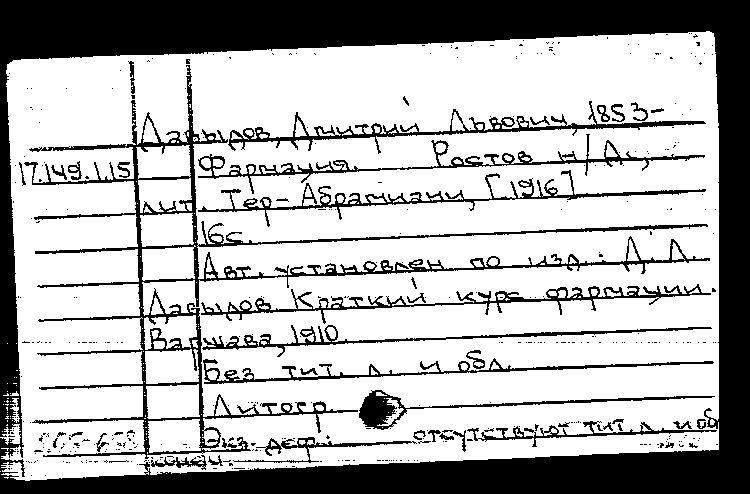 Давыдов, Дмитрий Львович, 1853-
17.149.1.15 Фармация. Ростов н/Д.,
лит. Тер-Абрамиани, [1916]
16с.
Авт. установлен по изд.: Д. Л.
Давыдов Краткий курс фармации.
Варшава, 1910.
Без тит. л. и обл.
Литогр.
Экз. деф.: отсутствуют тит. л. и об